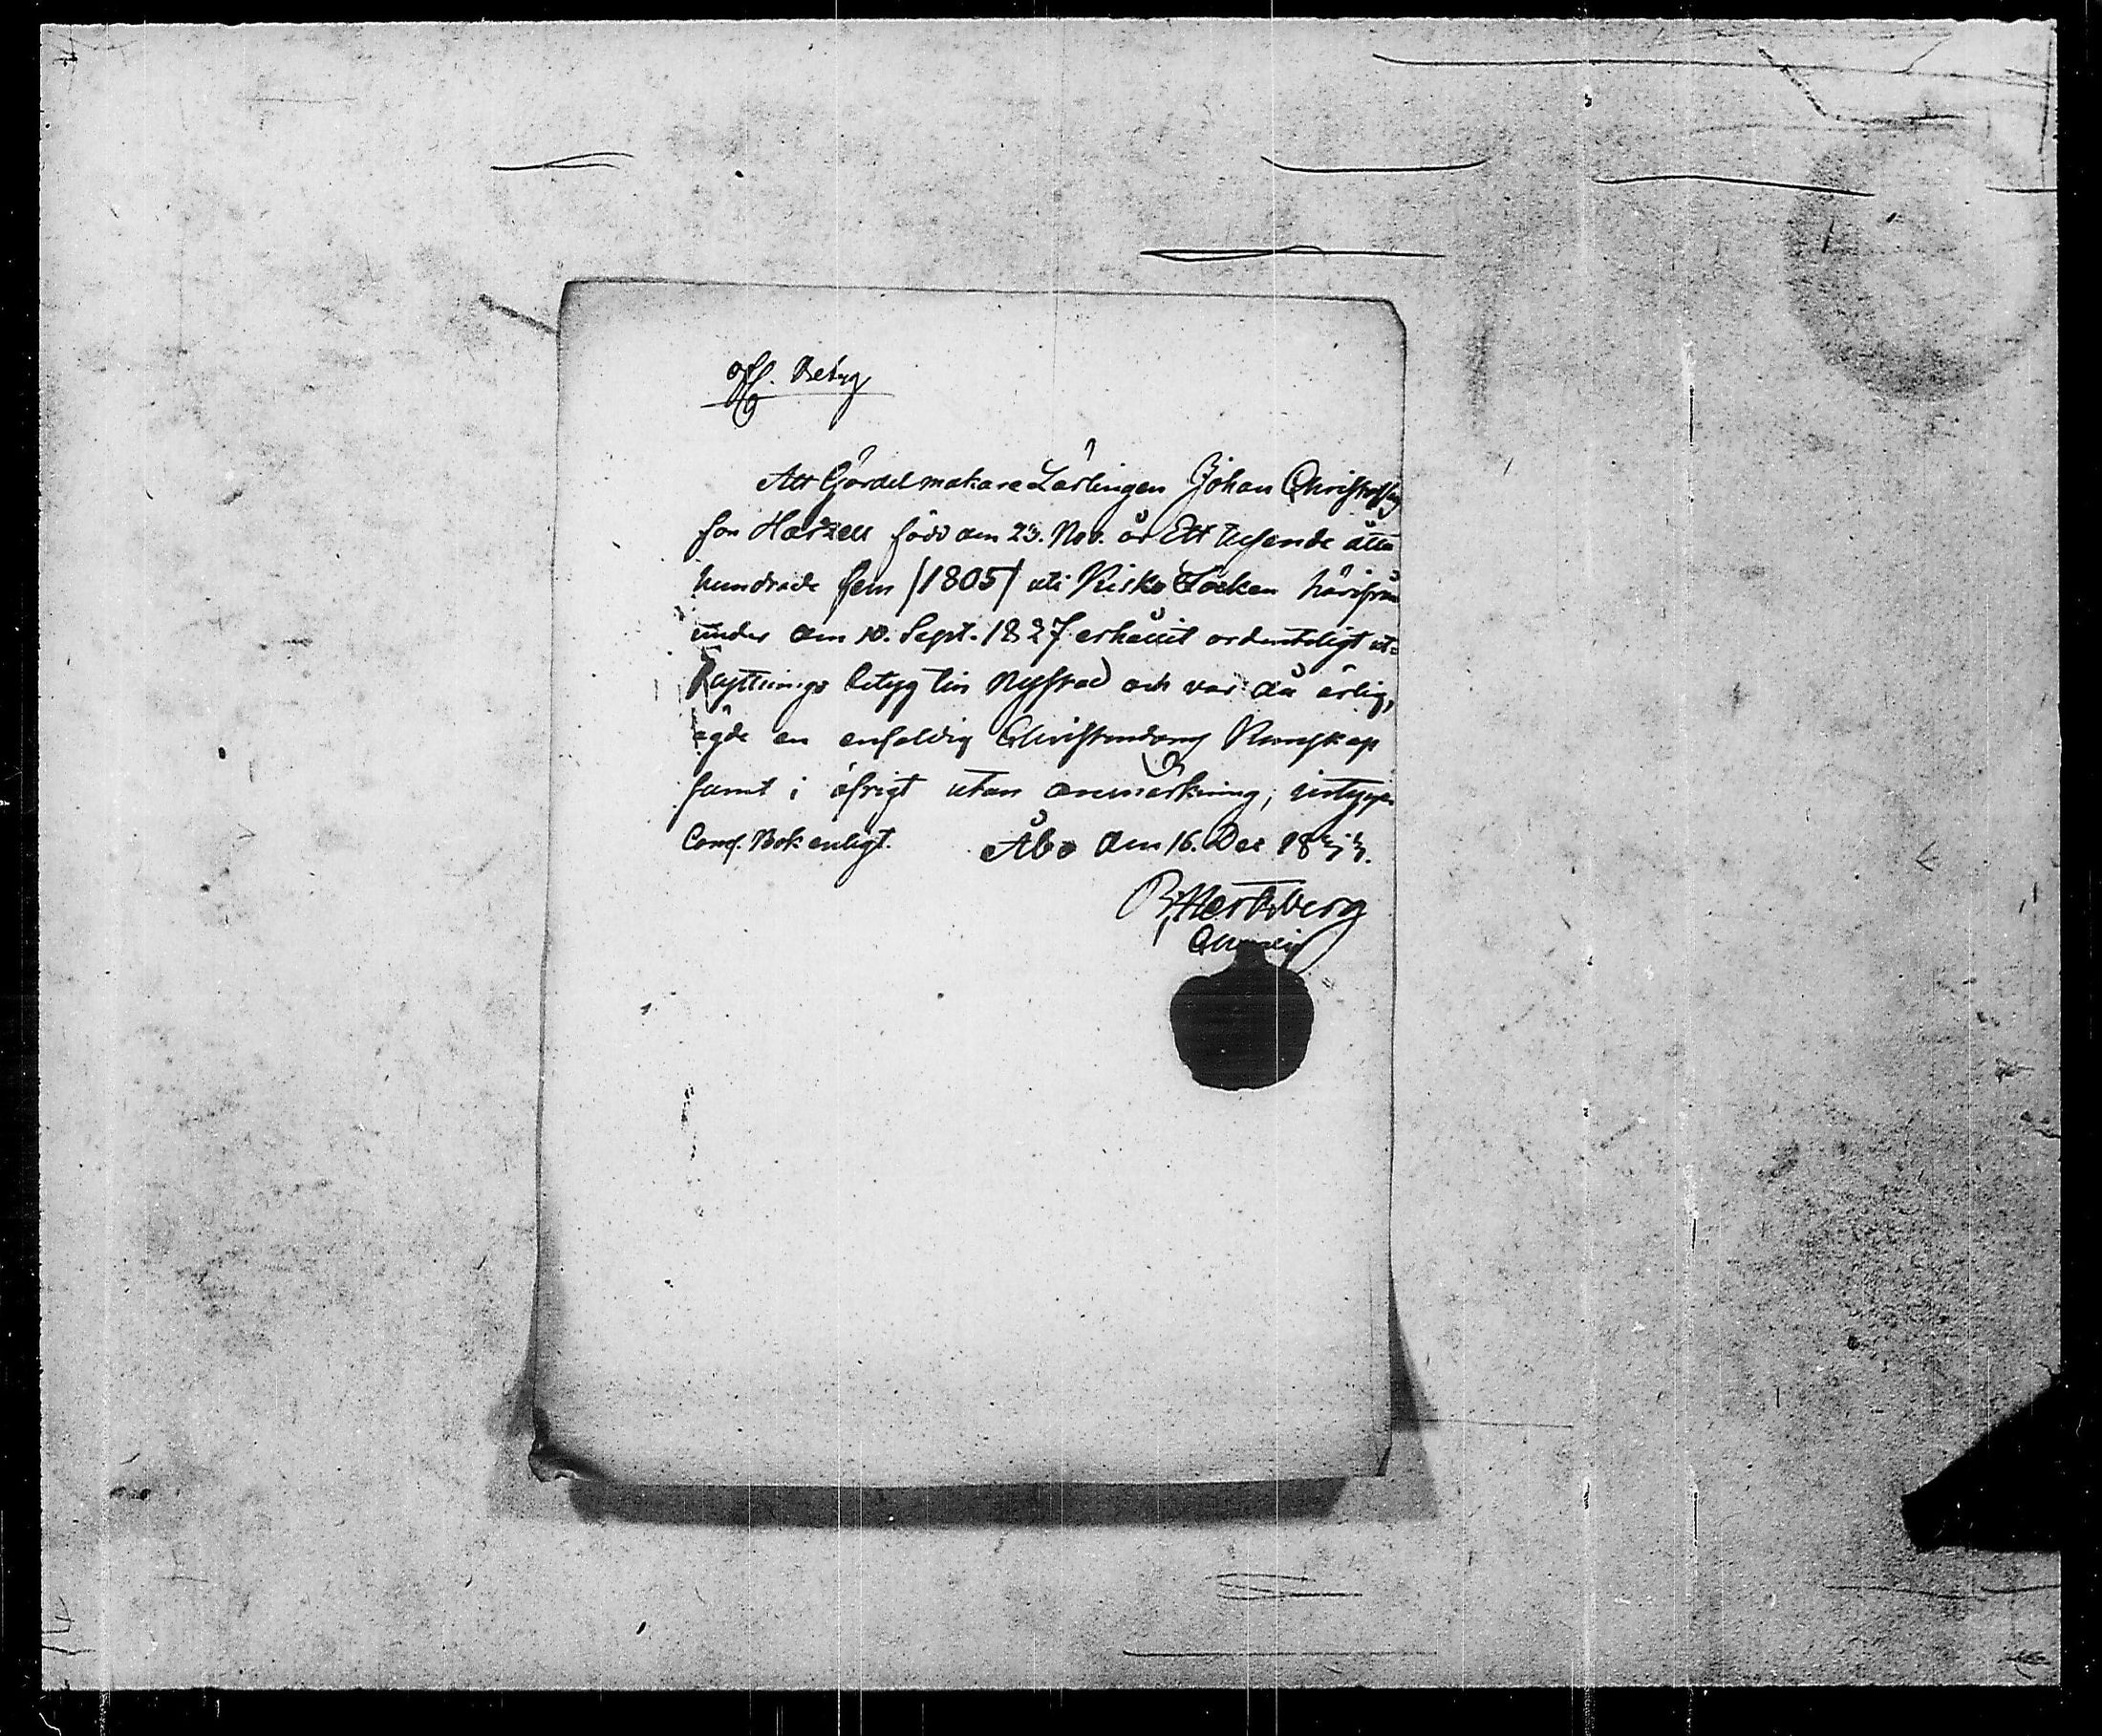 Aff. Betyg
Att Gördelmakare Lärlingen Johan Christoffers
son Harzell född den 23. Nov. år Ett tusende åtta
hundrade fem /1805/ uti Kisko Socken härifrån
under den 10. Sept. 1827 erhållit ordenteligt ut-
flyttnings betyg till Nystad och var då ärlig,
ägde en enfaldig Christendoms Kunskap
samt i öfrigt utan anmärkning, intygar
Conf. Bok enligt. Åbo den 16. Dec 1833.
B, Hertzberg